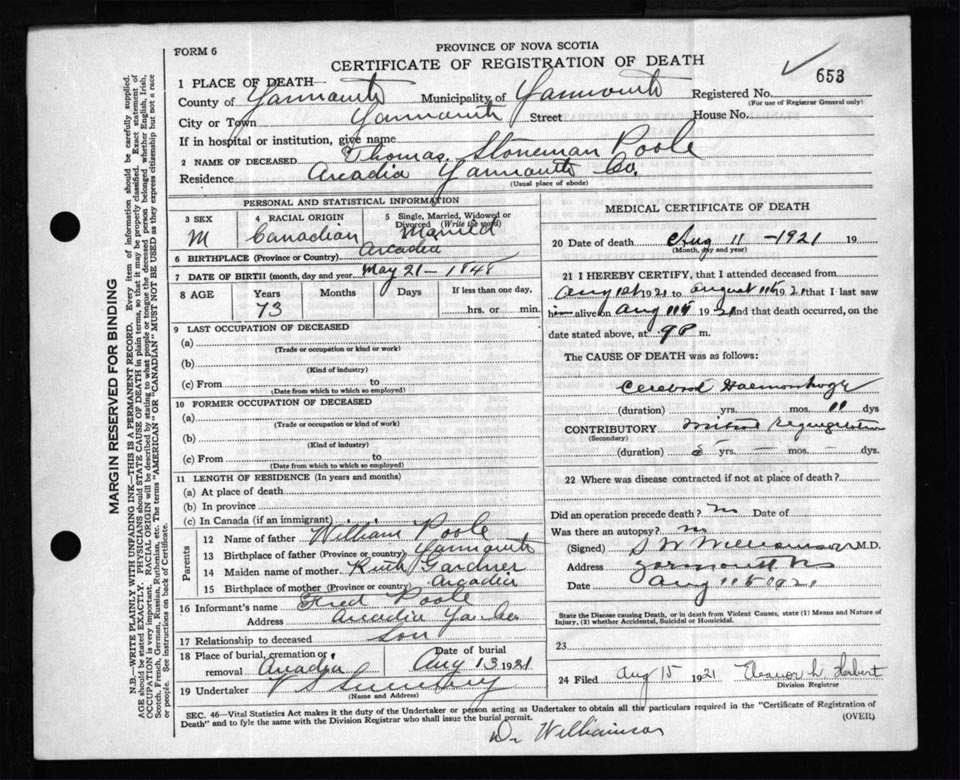 FORM 6
PROVINCE OF NOVA SCOTIA
CERTIFICATE OF REGISTRATION OF DEATH
653
1 PLACE OF DEATH
County of Yarmouth Municipality of Yarmouth Registered No.
(For use of Registrar General only)
City or Town Yarmouth Street House No.
If in hospital or institution, give name
2 NAME OF DECEASED Thomas Stoneman Poole
Residence Arcadia Yarmouth Co.
(Usual place of abode)
PERSONAL AND STATISTICAL INFORMATION
3 SEX M
4 RACIAL ORIGIN Canadian
5 Single, Married, Widowed or Divorced (Write the word) Married
6 BIRTHPLACE (Province or Country) Arcadia
7 DATE OF BIRTH (month, day and year) May 21-1848
8 AGE Years Months Days If less than one day,
73 hrs. or min.
9 LAST OCCUPATION OF DECEASED
(a)
(Trade or occupation or kind or work)
(b)
(Kind of industry)
(c) From to
(Date from which to which so employed)
10 FORMER OCCUPATION OF DECEASED
(a)
(Trade or occupation or kind of work)
(b)
(Kind of industry)
(c) From to
(Date from which to which so employed)
11 LENGTH OF RESIDENCE (In Years and months)
(a) At place of death
(b) In province
(c) In Canada (if an immigrant)
Parents
12 Name of father William Poole
13 Birthplace of father (Province or country) Yarmouth
14 Maiden name of mother Ruth Gardner
15 Birthplace of mother (Province or country) Arcadia
16 Informant's name Fred Poole
Address Arcadia Yar Co
17 Relationship to deceased son
18 Place of burial, cremation or removal Arcadia Date of burial Aug 13 1921
19 Undertaker V S Sweeny
(Name and Address)
MEDICAL CERTIFICATE OF DEATH
20 Date of death Aug 11-1921 19
(Month, day and year)
21 I HEREBY CERTIFY, that I attended deceased from
Aug 1st 1921 to August 11th 1921 that I last saw
him alive on Aug 11th 1921 and that death occurred, on the
date stated above, at 9 P m.
The CAUSE OF DEATH was as follows:
Cerebral Haemorrhage
(duration) yrs. mos. 11 dys
CONTRIBUTORY Mitral Regurgitation
(Secondary)
(duration) 5 yrs. — mos. dys.
22 Where was disease contracted if not at place of death?
Did an operation precede death? no Date of
Was there an autopsy? no
(Signed) S W Williamson M.D.
Address Yarmouth NS
Date Aug 11th 1921
State the Disease causing Death, or in death from Violent Causes, state (1) Means and Nature of
Injury, (2) whether Accidental, Suicidal or Homicidal.
23
24 Filed Aug 15 1921 Eleanor L. Herbert
Division Registrar
SEC. 46—Vital Statistics Act makes it the duty of the Undertaker or person acting as Undertaker to obtain all the particulars required in the "Certificate of Registration of
Death" and to fyle the same with the Division Registrar who shall issue the burial permit. (OVER)
Dr Williamson
MARGIN RESERVED FOR BINDING
N.B.—WRITE PLAINLY WITH UNFADING INK—THIS IS A PERMANENT RECORD. Every item of information should be carefully supplied.
AGE should be stated EXACTLY. PHYSICIANS should STATE CAUSE OF DEATH in plain terms, so that it may be properly classified. Exact statement of
OCCUPATION is very important. RACIAL ORIGIN will be described by stating to what people or tongue the deceased person belonged whether English, Irish,
Scotch, French, German, Russian, Ruthenian, etc. The terms "AMERICAN" OR "CANADIAN" MUST NOT BE USED as they express citizenship but not a race
or people. See instructions on back of Certificate.